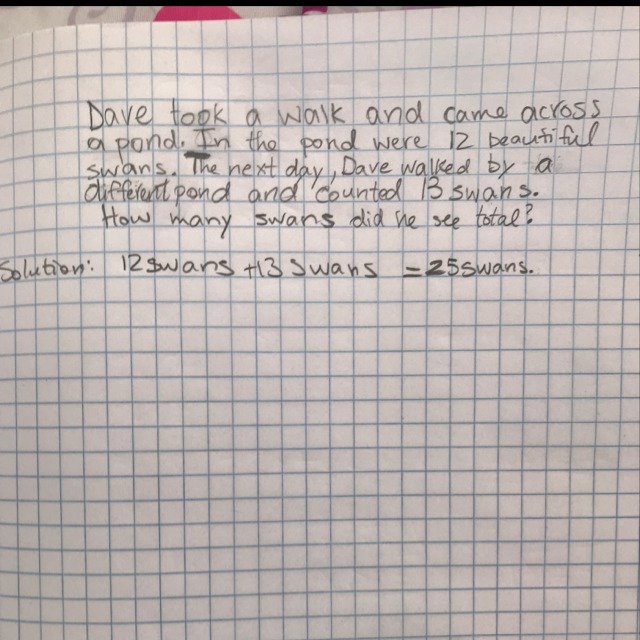 Dave took a walk and came across
a pond. In the pond were 12 beautiful
swans. The next day, Dave walked by a
different pond and counted 13 swans.
How many swans did he see total?
Solution: 12 swans +13 swans = 25 swans.